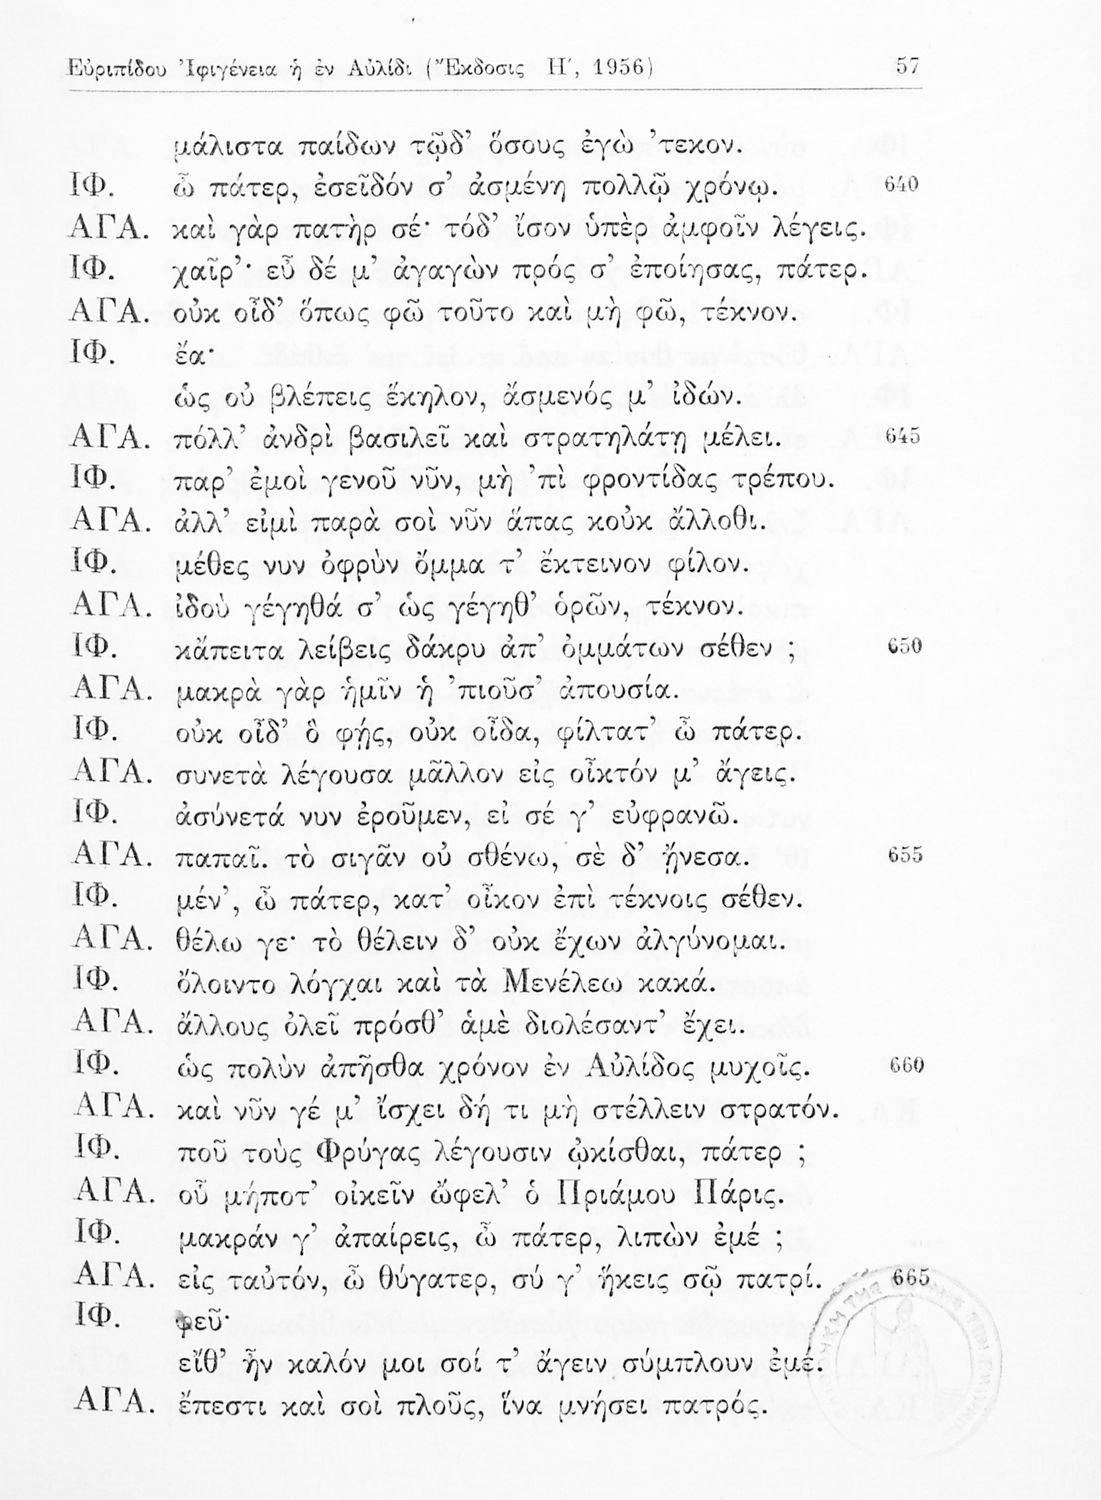 Εὐριπίδου Ἰφιγένεια ἡ ἐν Αὐλίδι (Ἔκδοσις Η', 1956) 57
μάλιστα παίδων τῷδ' ὅσους ἐγὼ 'τεκον.
ΙΦ. ὦ πάτερ, ἐσεῖδόν σ' ἀσμένη πολλῷ χρόνῳ. 640
ΑΓΑ. καὶ γὰρ πατὴρ σέ· τόδ' ἴσον ὑπὲρ ἀμφοῖν λέγεις.
ΙΦ. χαῖρ'· εὖ δέ μ' ἀγαγὼν πρός σ' ἐποίησας, πάτερ.
ΑΓΑ. οὐκ οἶδ' ὅπως φῶ τοῦτο καὶ μὴ φῶ, τέκνον.
ΙΦ. ἔα·
ὡς οὐ βλέπεις ἕκηλον, ἄσμενός μ' ἰδών.
ΑΓΑ. πόλλ' ἀνδρὶ βασιλεῖ καὶ στρατηλάτῃ μέλει. 645
ΙΦ. παρ' ἐμοὶ γενοῦ νῦν, μὴ 'πὶ φροντίδας τρέπου.
ΑΓΑ. ἀλλ' εἰμὶ παρὰ σοὶ νῦν ἅπας κοὐκ ἄλλοθι.
ΙΦ. μέθες νυν ὀφρὺν ὄμμα τ' ἔκτεινον φίλον.
ΑΓΑ. ἰδοὺ γέγηθά σ' ὡς γέγηθ' ὁρῶν, τέκνον.
ΙΦ. κἄπειτα λείβεις δάκρυ ἀπ' ὀμμάτων σέθεν ; 650
ΑΓΑ. μακρὰ γὰρ ἡμῖν ἡ 'πιοῦσ' ἀπουσία.
ΙΦ. οὐκ οἶδ' ὃ φής, οὐκ οἶδα, φίλτατ' ὦ πάτερ.
ΑΓΑ. συνετὰ λέγουσα μᾶλλον εἰς οἶκτόν μ' ἄγεις.
ΙΦ. ἀσύνετά νυν ἐροῦμεν, εἰ σέ γ' εὐφρανῶ.
ΑΓΑ. παπαῖ. τὸ σιγᾶν οὐ σθένω, σὲ δ' ᾔνεσα. 655
ΙΦ. μέν', ὦ πάτερ, κατ' οἶκον ἐπὶ τέκνοις σέθεν.
ΑΓΑ. θέλω γε· τὸ θέλειν δ' οὐκ ἔχων ἀλγύνομαι.
ΙΦ. ὄλοιντο λόγχαι καὶ τὰ Μενέλεω κακά.
ΑΓΑ. ἄλλους ὀλεῖ πρόσθ' ἁμὲ διολέσαντ' ἔχει.
ΙΦ. ὡς πολὺν ἀπῆσθα χρόνον ἐν Αὐλίδος μυχοῖς. 660
ΑΓΑ. καὶ νῦν γέ μ' ἴσχει δή τι μὴ στέλλειν στρατόν.
ΙΦ. ποῦ τοὺς Φρύγας λέγουσιν ᾠκίσθαι, πάτερ ;
ΑΓΑ. οὗ μήποτ' οἰκεῖν ὤφελ' ὁ Πριάμου Πάρις.
ΙΦ. μακράν γ' ἀπαίρεις, ὦ πάτερ, λιπὼν ἐμέ ;
ΑΓΑ. εἰς ταὐτόν, ὦ θύγατερ, σύ γ' ἥκεις σῷ πατρί. 665
ΙΦ. φεῦ·
εἴθ' ἦν καλόν μοι σοί τ' ἄγειν σύμπλουν ἐμέ.
ΑΓΑ. ἔπεστι καὶ σοὶ πλοῦς, ἵνα μνήσει πατρός.